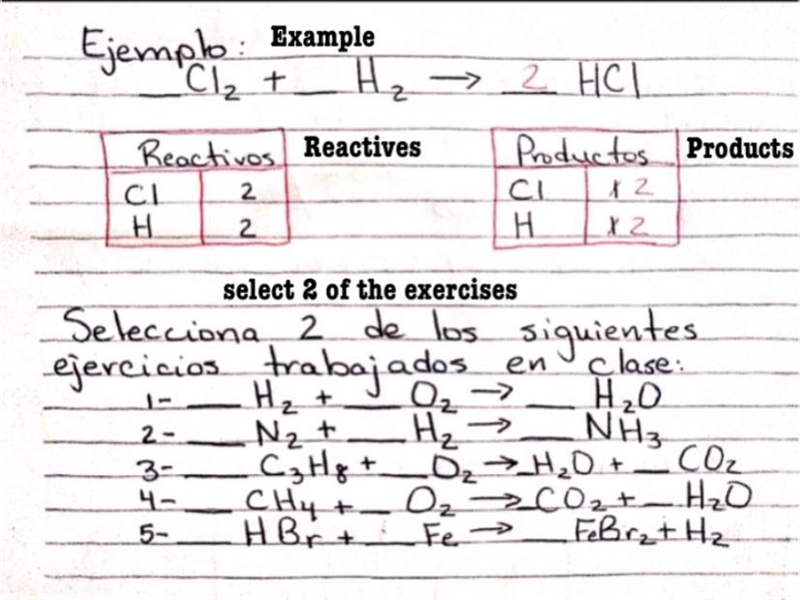 Ejemplo: Example
__Cl₂ + __ H₂ → 2 HCl
Reactivos Reactives Productos Products
Cl 2 Cl 1 2
H 2 H 1 2
select 2 of the exercises
Selecciona 2 de los siguientes
ejercicios trabajados en clase:
1- __ H₂ + __ O₂ → __ H₂O
2- __ N₂ + __ H₂ → __ NH₃
3- __ C₃H₈ + __ O₂ → __ H₂O + __ CO₂
4- __ CH₄ + __ O₂ → __ CO₂ + __ H₂O
5- __ HBr + __ Fe → __ FeBr₂ + H₂